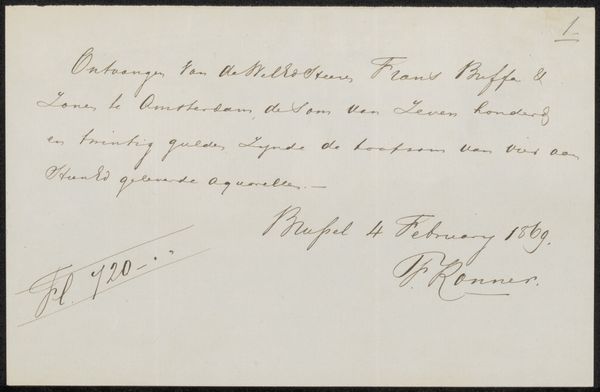 1.
Ontvangen van de WelEd Heeren Frans Buffa &
Zonen te Amsterdam, de Som van Zeven honderd
en twintig gulden Zynde de koopsom van vier aan
HunEd geleverde aquarellen. —
Brussel 4 February 1869.
F. Ronner.
Fl. 720 - . "